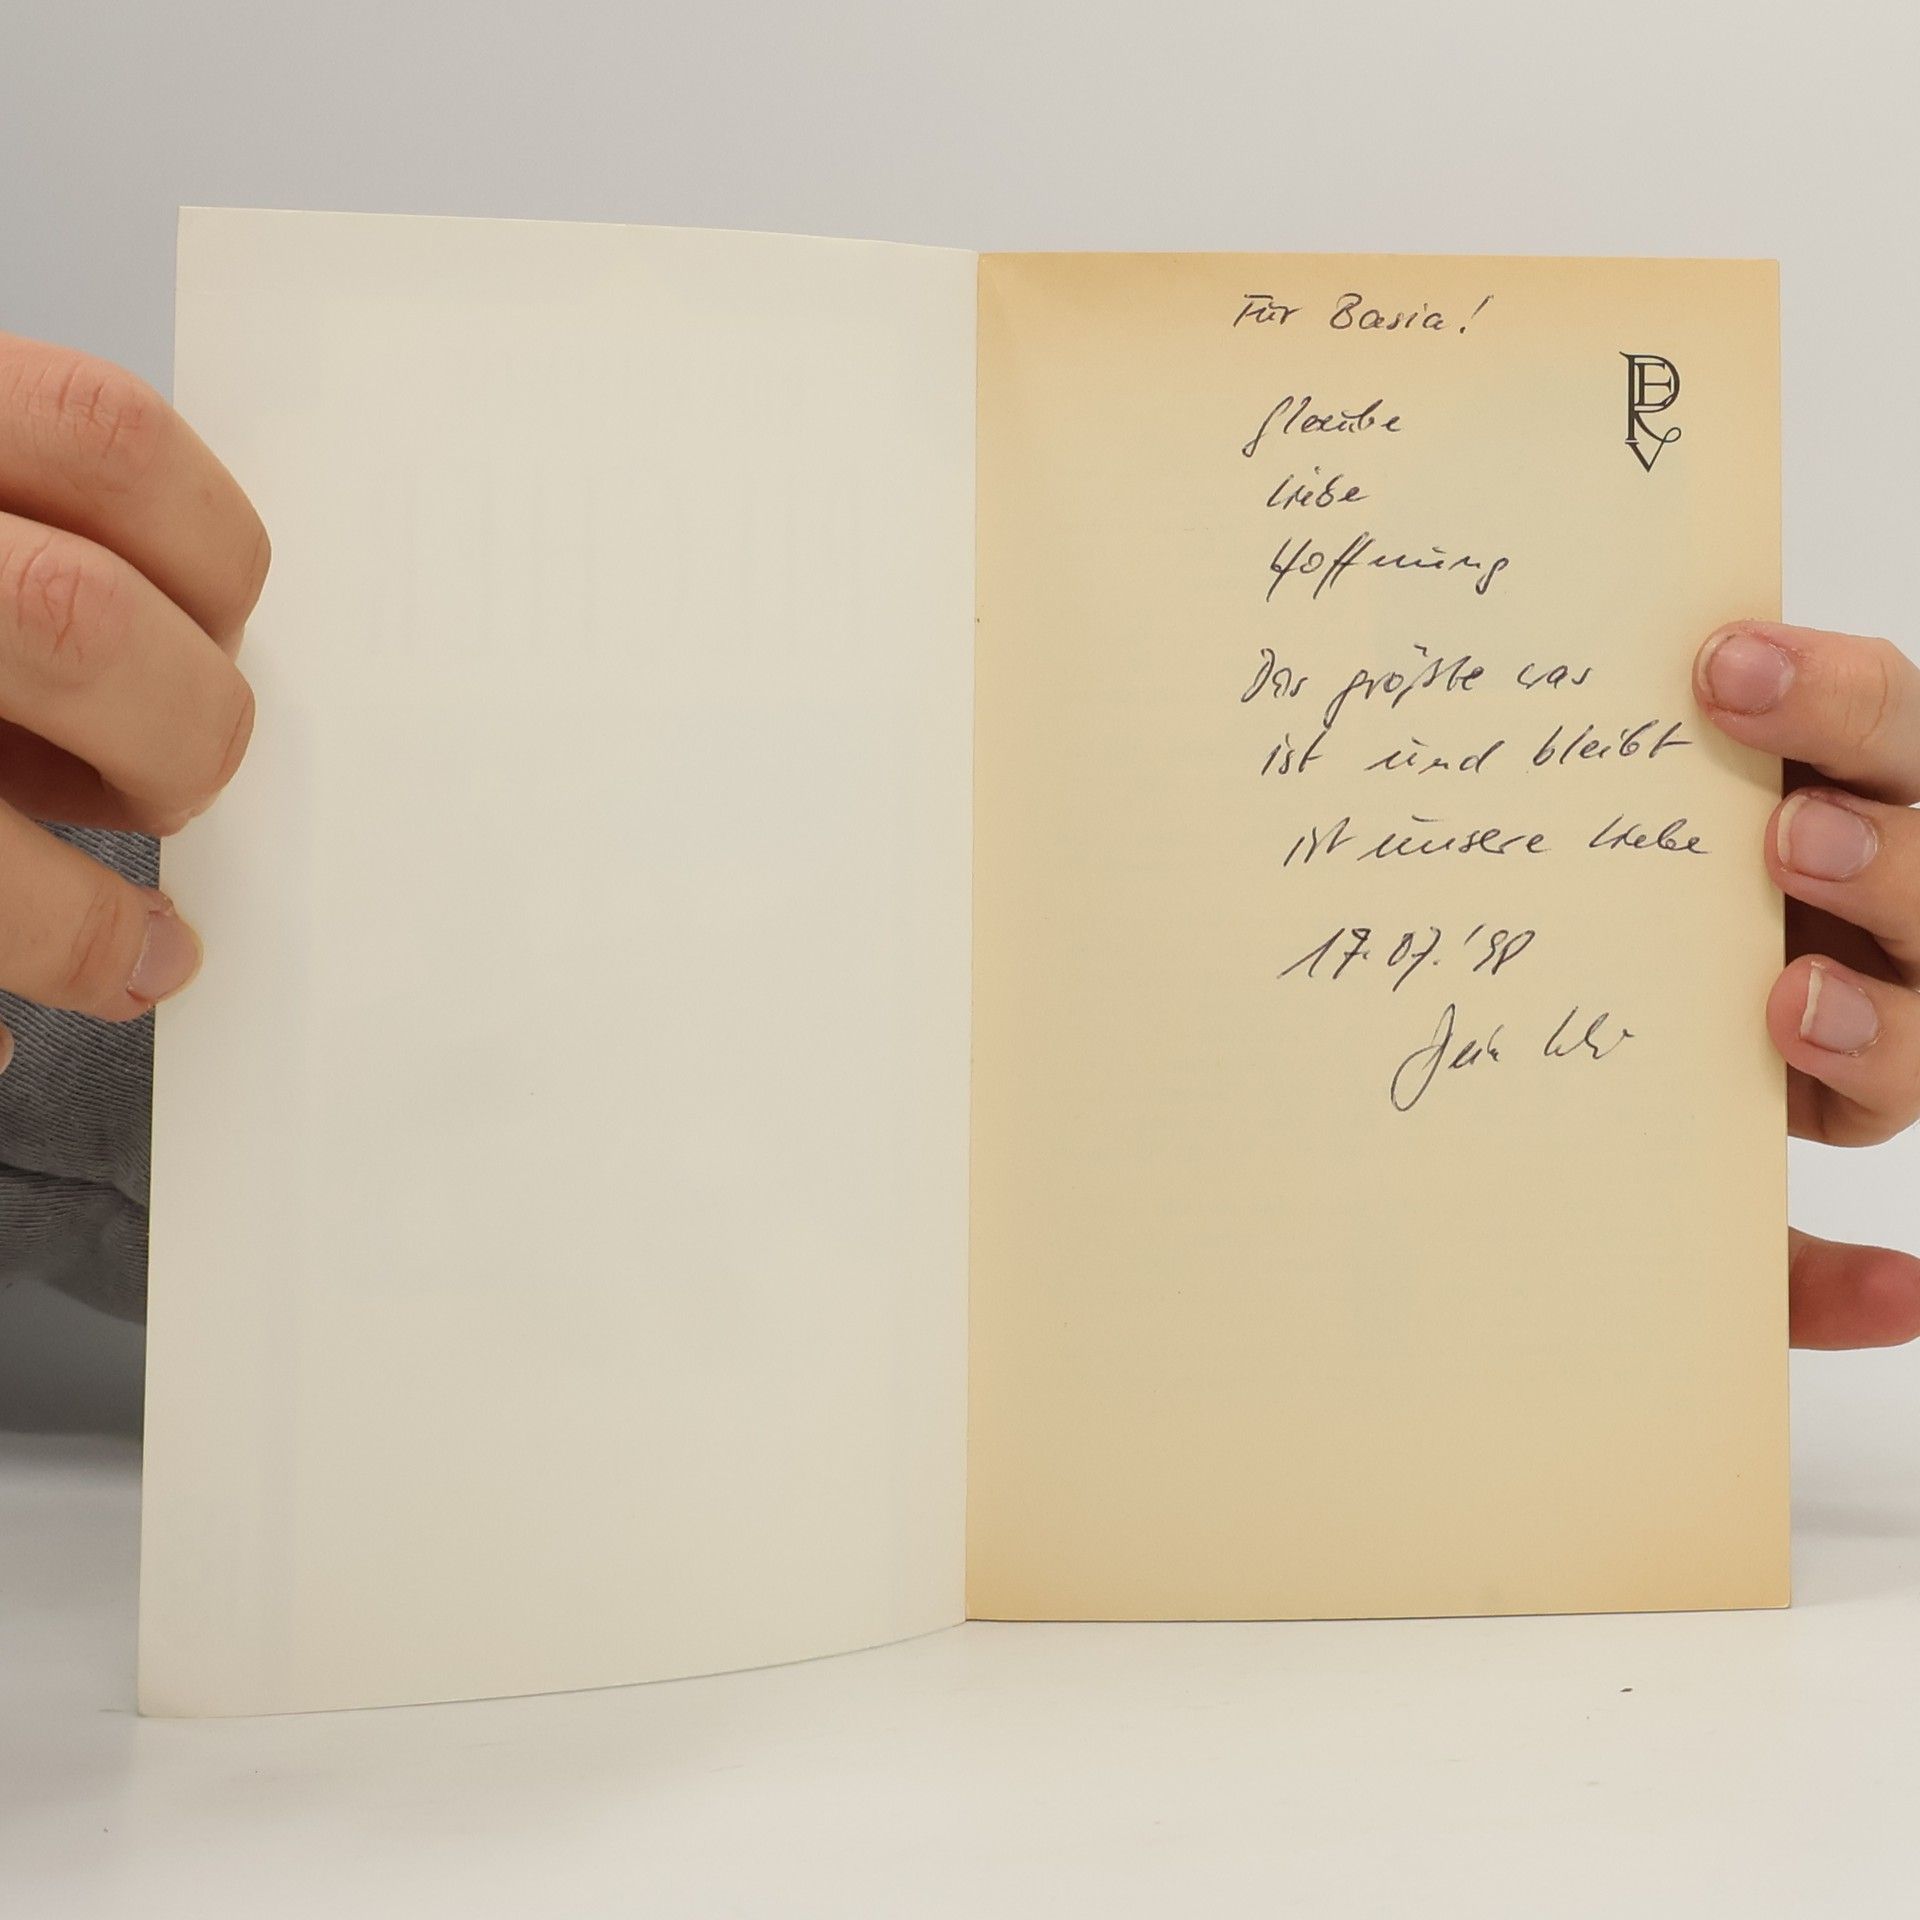 Für Basia!
PERV
Glaube
Liebe
Hoffnung
Das größte was
ist und bleibt
ist unsere Liebe
17.07.'98
Dein